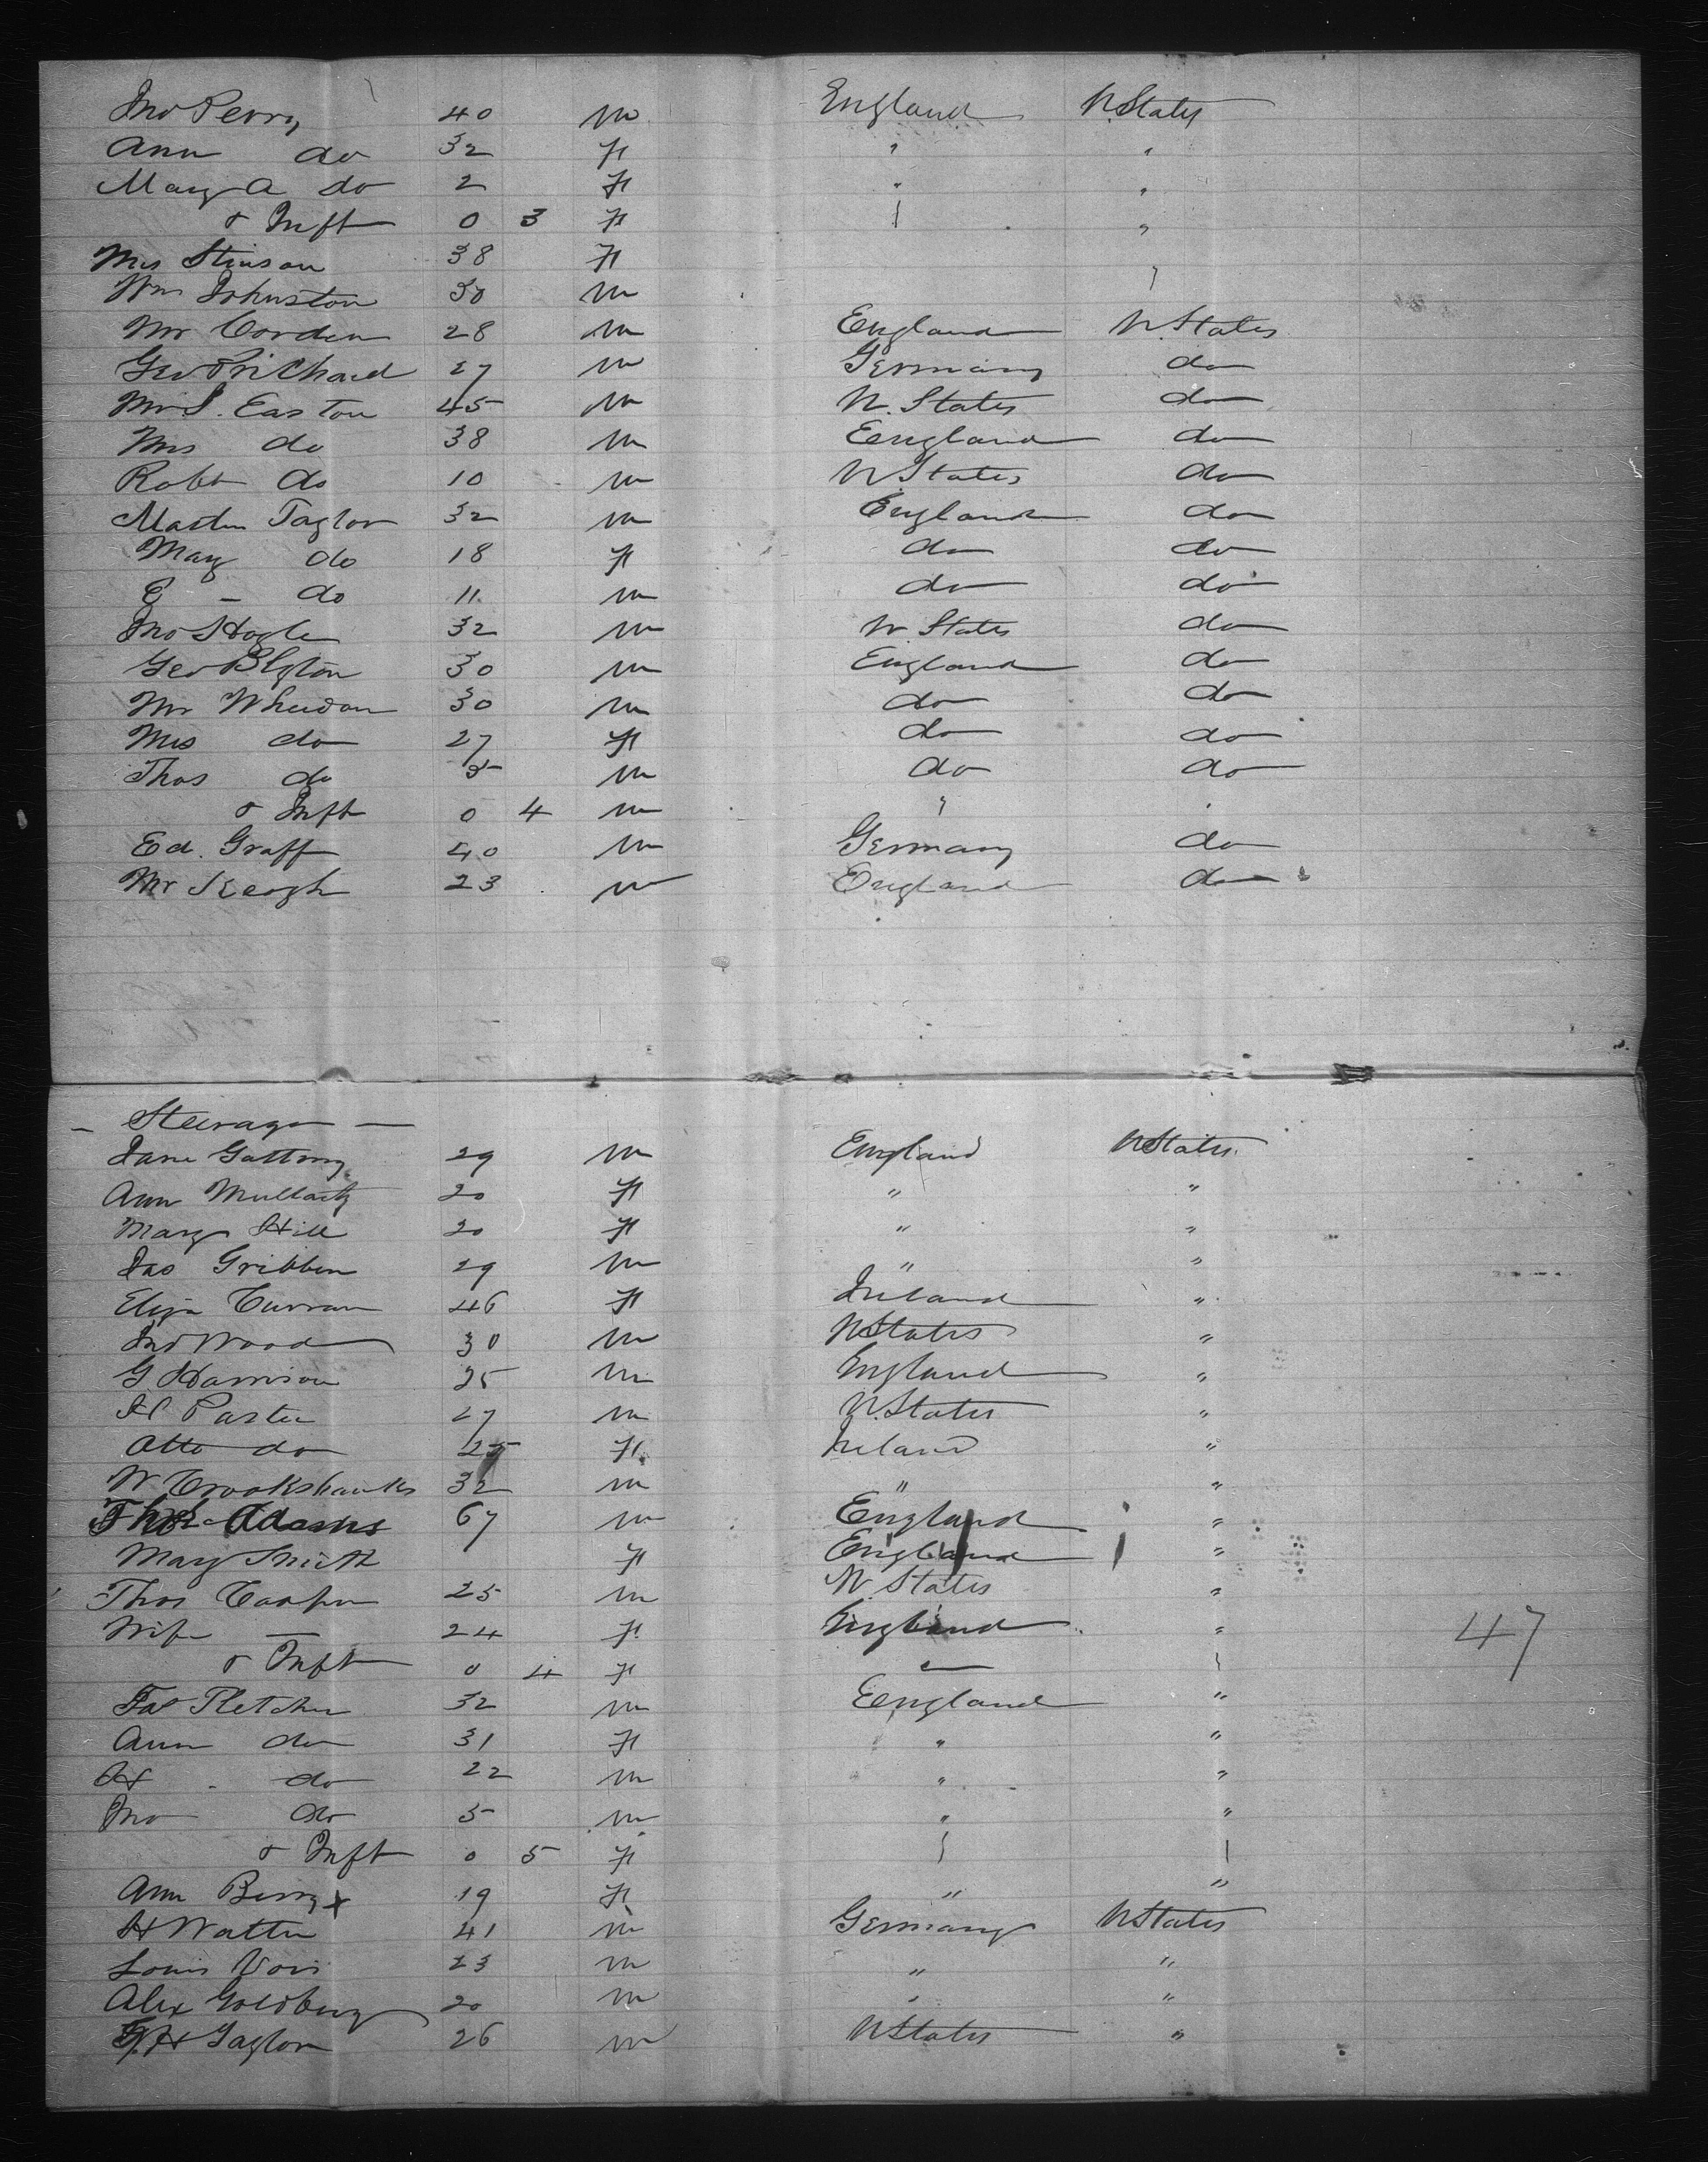 Jno Perry 40 m England U.States
Ann do 32 F " "
Mary A do 2 F " "
& Inft 0 3 F "
Mrs Stinson 38 F
Wm Johnston 30 m
Mr Corden 28 m England U.States
Geo Prichard 27 m Germany do
Mr S. Easton 45 m U.States do
Mrs do 38 m England do
Robt do 10 m U.States do
Martin Taylor 32 m England do
Mary do 18 F do do
E - do 11 m do do
Jno Hogle 32 m U.States do
Geo 30 m England do
Mr 30 m do do
Mrs do 27 F do do
Thos do 5 m do do
& Inft 0 4 m
Ed. Graff 40 m Germany do
Mr Keogh 23 m England do
- Steerage -
Jane 29 m England U States
Ann 20 F " "
Mary Hill 20 F " "
Jas Gribben 29 m " "
Eliza Curran 46 F Ireland "
Jno Wood 30 m U States "
G Harrison 25 m England "
27 m U.States "
do 25 F Ireland "
W Crookshanks 32 m " "
Thos Adams 67 m England "
Mary Smith F England "
Thos Cooper 25 m U States "
Wife — 24 F England "
& Inft 0 4 F
Jas Fletcher 32 m England "
Ann do 31 F " "
do 22 m " "
Jno do 5 m " "
& Inft 0 5 F
Ann Berry x 19 F " "
H Walter 41 m Germany U States
Louis 23 m " "
Alex Goldberg 20 m " "
Taylor 26 m U States "
47